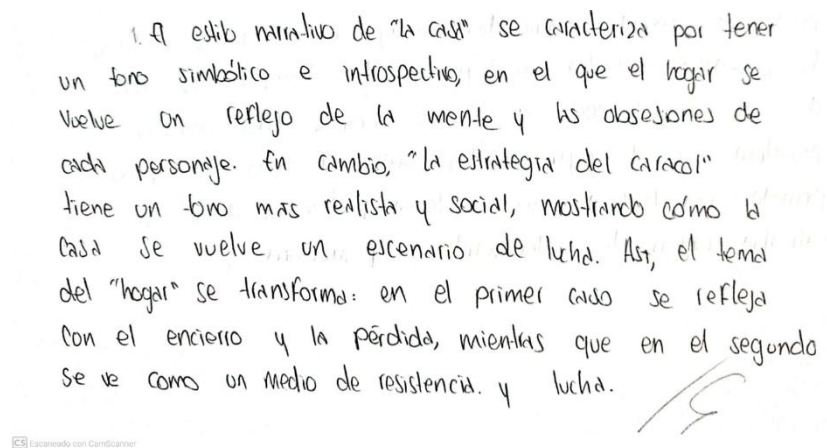 1. El estilo narrativo de "la casa" se caracteriza por tener
un tono simbólico e introspectivo, en el que el hogar se
vuelve un reflejo de la mente y las obsesiones de
cada personaje. En cambio, "La estrategia del caracol"
tiene un tono más realista y social, mostrando cómo la
casa se vuelve un escenario de lucha. Así, el tema
del "hogar" se transforma: en el primer caso se refleja
con el encierro y la pérdida, mientras que en el segundo
se ve como un medio de resistencia. y lucha.
CS Escaneado con CamScanner